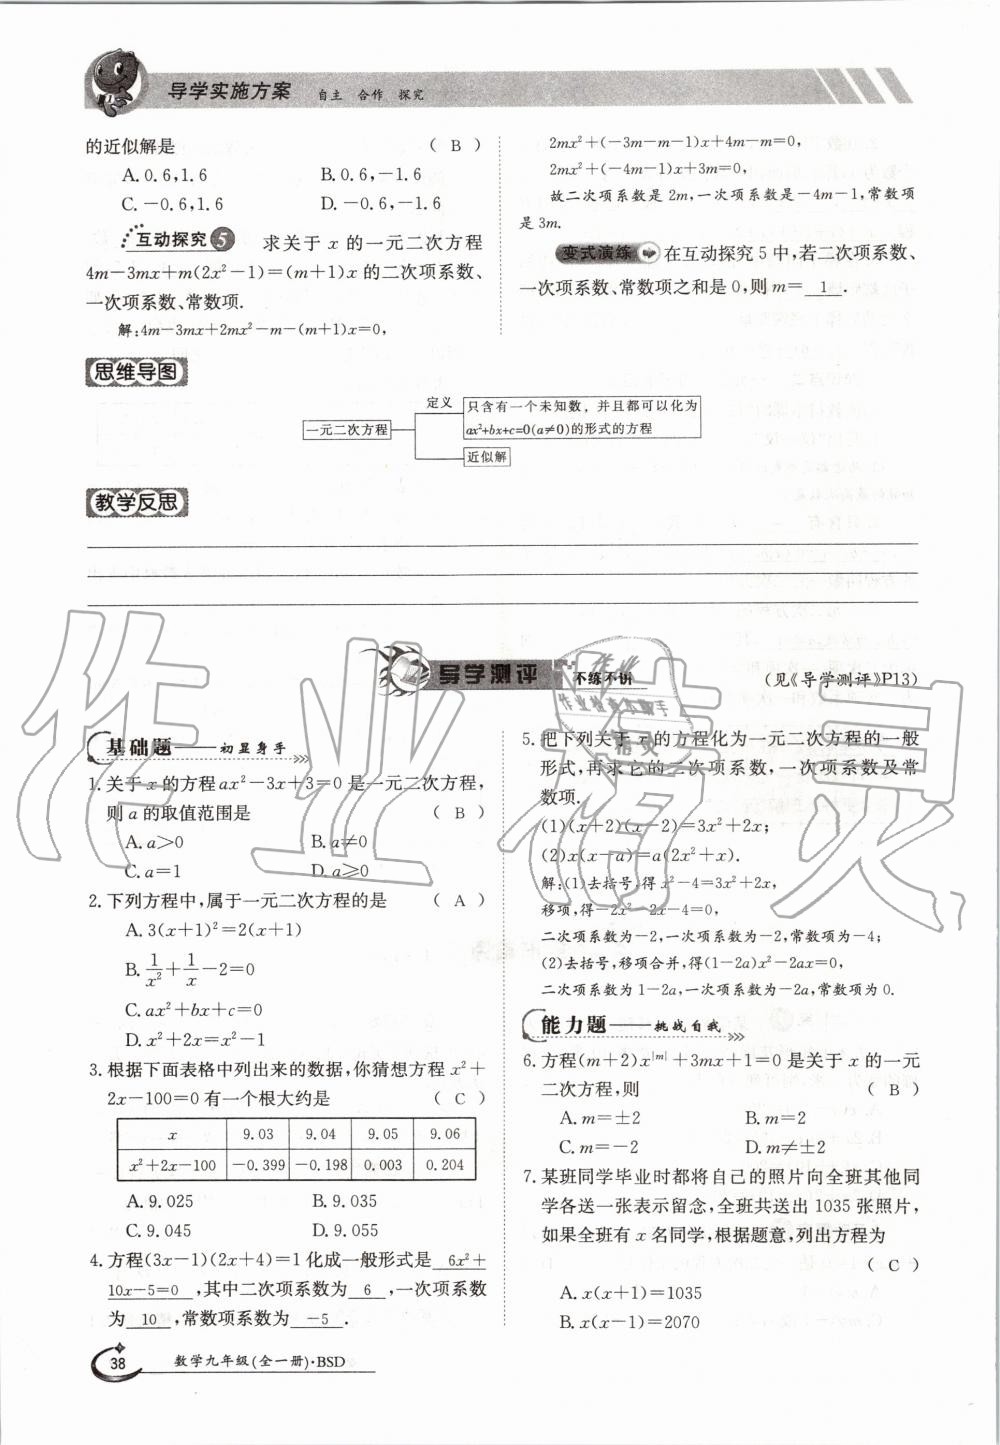 导学实施方案 自主 合作 探究
的近似解是 （ B ）
A. 0.6,1.6 B. 0.6,-1.6
C. -0.6,1.6 D. -0.6,-1.6
互动探究5 求关于 x 的一元二次方程
4m-3mx+m(2x²-1)=(m+1)x 的二次项系数、
一次项系数、常数项.
解:4m-3mx+2mx²-m-(m+1)x=0,
2mx²+(-3m-m-1)x+4m-m=0,
2mx²+(-4m-1)x+3m=0,
故二次项系数是 2m,一次项系数是-4m-1,常数项
是 3m.
变式演练 在互动探究 5 中,若二次项系数、
一次项系数、常数项之和是 0,则 m= 1 .
思维导图
一元二次方程
定义
只含有一个未知数，并且都可以化为
ax²+bx+c=0(a≠0)的形式的方程
近似解
教学反思
导学测评 不练不讲 (见《导学测评》P13)
基础题——初显身手
1. 关于 x 的方程 ax²-3x+3=0 是一元二次方程,
则 a 的取值范围是 （ B ）
A. a>0 B. a≠0
C. a=1 D. a≥0
2. 下列方程中,属于一元二次方程的是 （ A ）
A. 3(x+1)²=2(x+1)
B. 1/x²+1/x-2=0
C. ax²+bx+c=0
D. x²+2x=x²-1
3. 根据下面表格中列出来的数据,你猜想方程 x²+
2x-100=0 有一个根大约是 （ C ）
x 9.03 9.04 9.05 9.06
x²+2x-100 -0.399 -0.198 0.003 0.204
A. 9.025 B. 9.035
C. 9.045 D. 9.055
4. 方程(3x-1)(2x+4)=1 化成一般形式是 6x²+
10x-5=0 ,其中二次项系数为 6 ,一次项系数
为 10 ,常数项系数为 -5 .
5. 把下列关于 x 的方程化为一元二次方程的一般
形式,再求它的二次项系数,一次项系数及常
数项.
(1)(x+2)(x-2)=3x²+2x;
(2)x(x-a)=a(2x²+x).
解:(1)去括号,得 x²-4=3x²+2x,
移项,得-2x²-2x-4=0,
二次项系数为-2,一次项系数为-2,常数项为-4;
(2)去括号,移项合并,得(1-2a)x²-2ax=0,
二次项系数为 1-2a,一次项系数为-2a,常数项为 0.
能力题——挑战自我
6. 方程(m+2)x|m|+3mx+1=0 是关于 x 的一元
二次方程,则 （ B ）
A. m=±2 B. m=2
C. m=-2 D. m≠±2
7. 某班同学毕业时都将自己的照片向全班其他同
学各送一张表示留念,全班共送出 1035 张照片,
如果全班有 x 名同学,根据题意,列出方程为
（ C ）
A. x(x+1)=1035
B. x(x-1)=2070
38 数学九年级(全一册)·BSD
作业精灵
作业
作业检查小助手
精灵